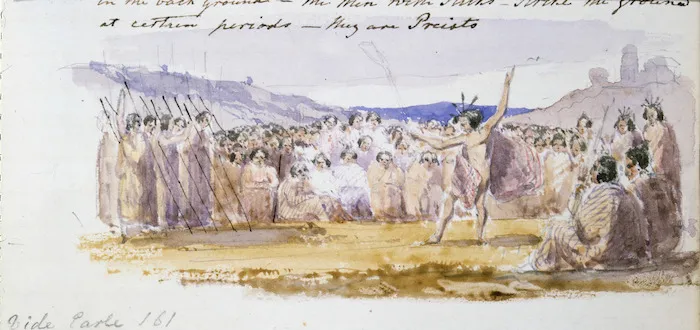 in the back ground - the Men with Sticks - strike the ground
at certain periods - they are Preists
Vide Earle 161